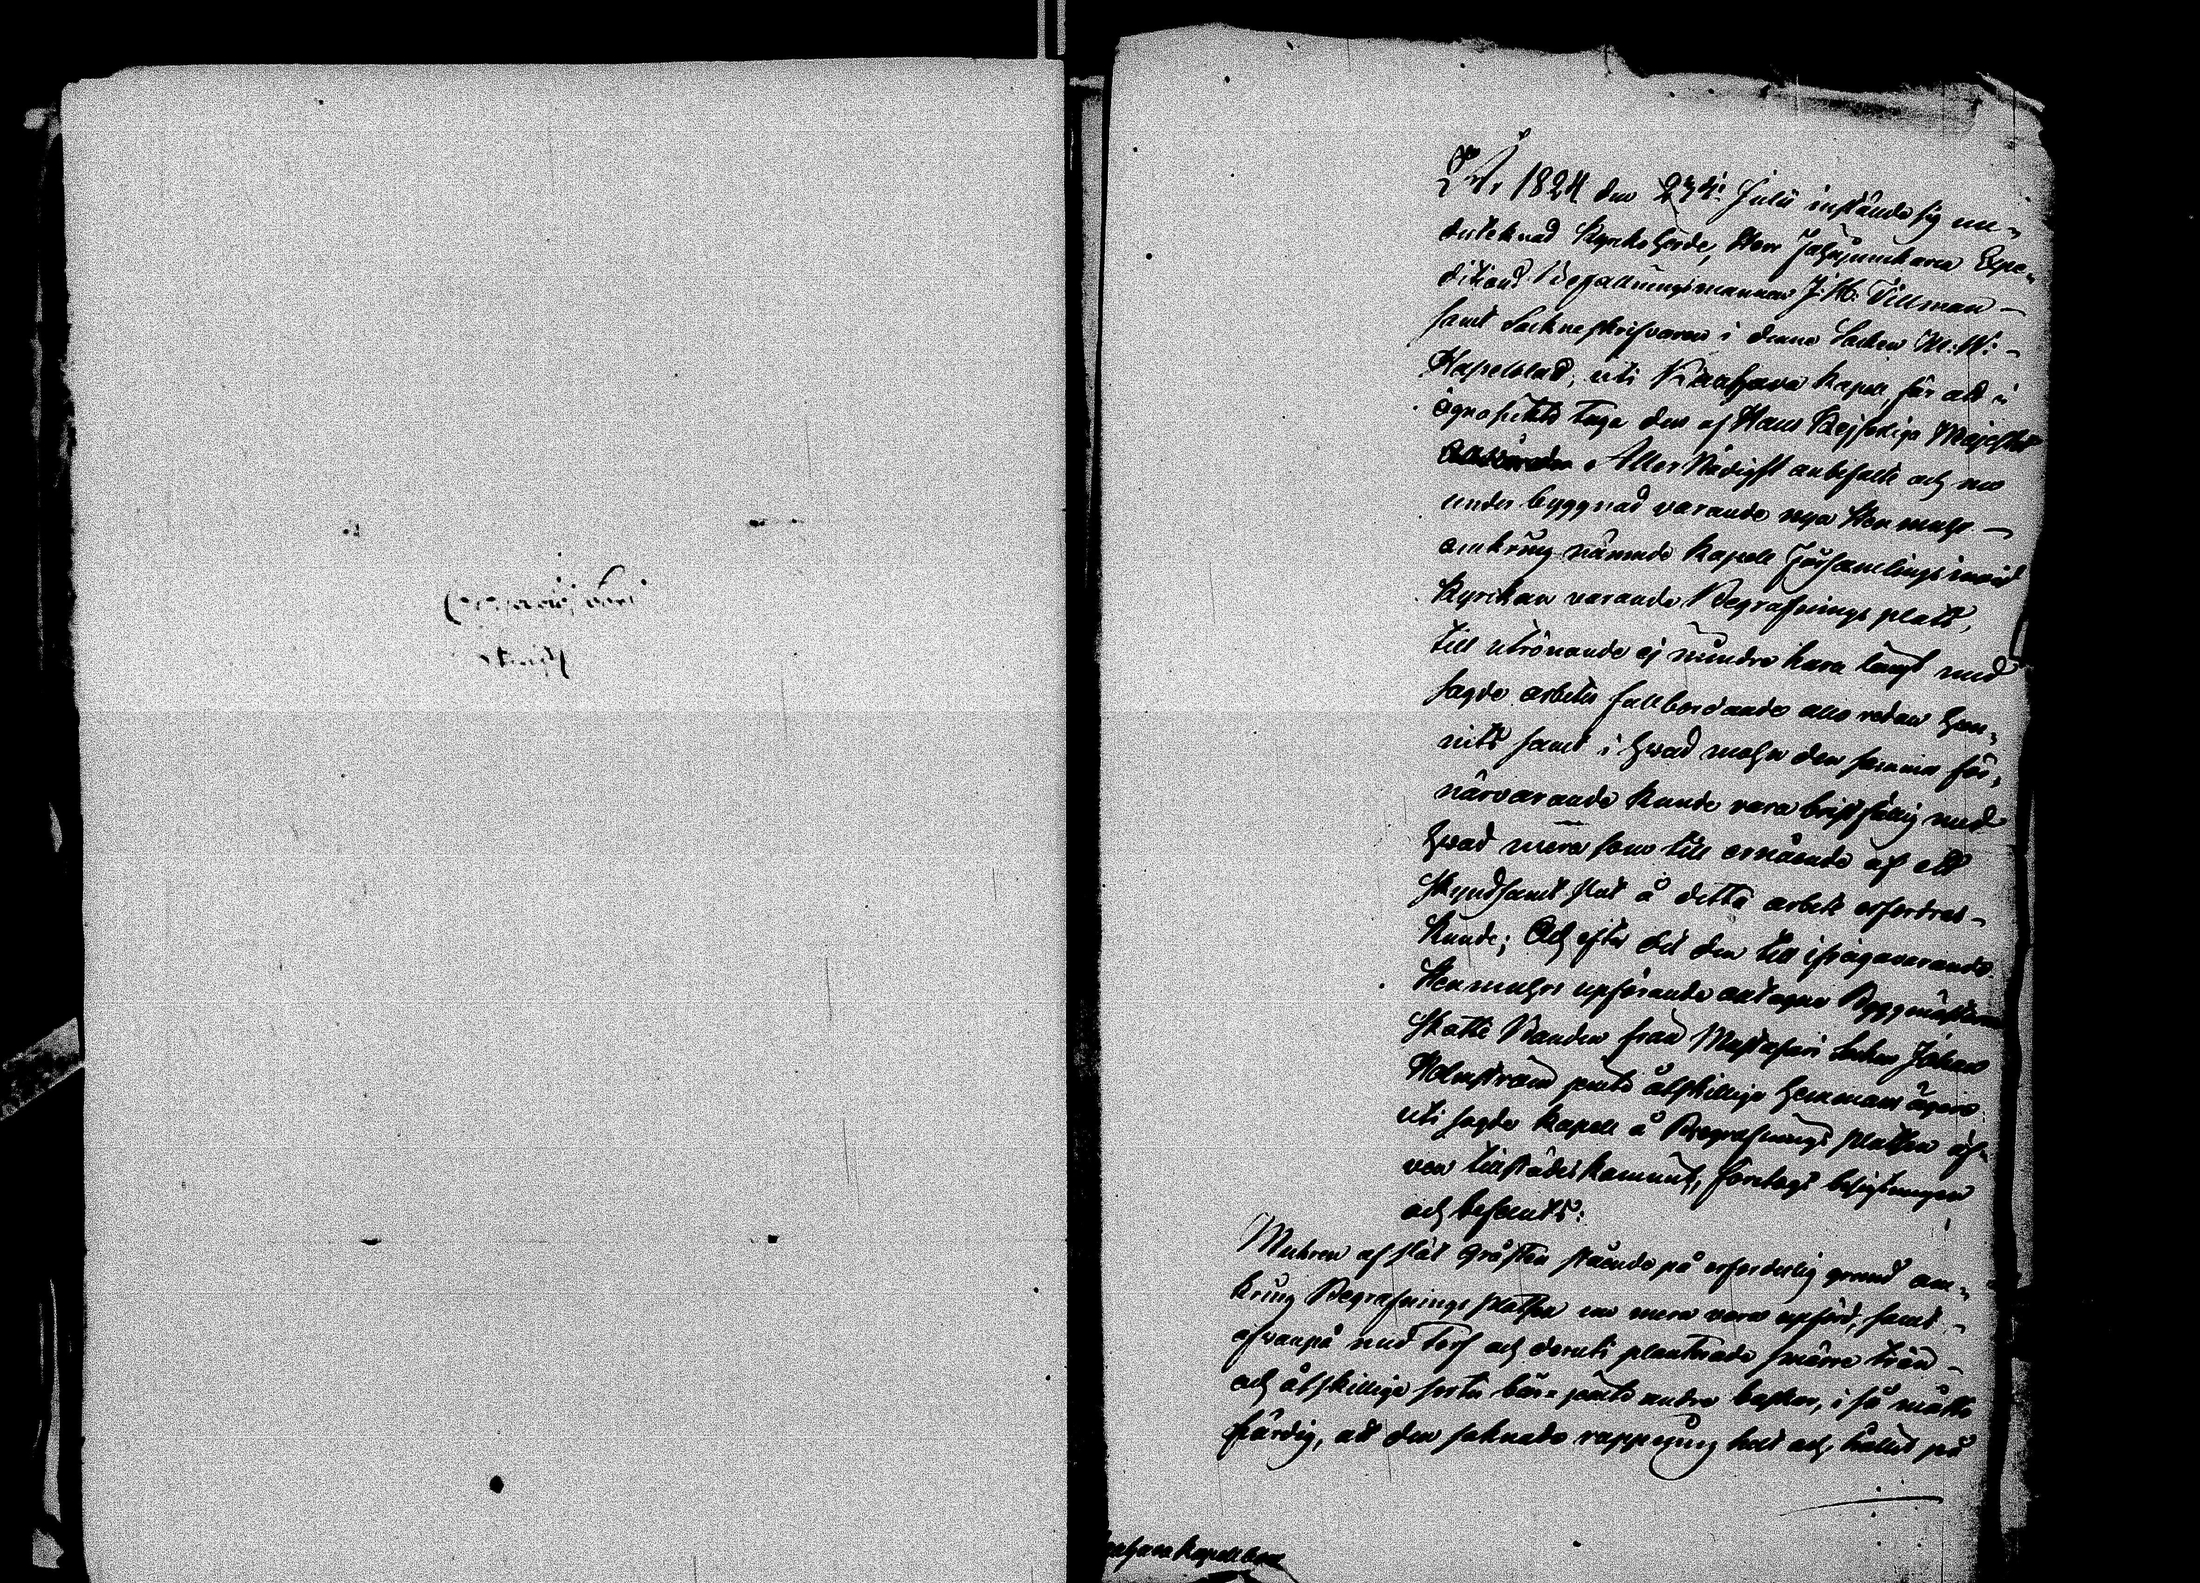 År 1824 den 27de Julii instälde sig un-
derteknad Kyrkoherde, Herr Jagtjunkaren Expe-
ditions Befallningsmannen J: H: Tillman
samt Socknesskrifvaren i denne Socken
uti Kapell, för att i
ögnesikte taga den af Hans Kejserliga Majestät
Aller Nådigst anbefalte och nu
under byggnad varande nya Stenmuhr
omkring nämnde Kapell Församlings invid
Kyrkan varande Begrafnings plats,
till utrönande ej mindre huru långt med
sagde arbetes fullbordande allaredan hun-
nits samt i hvad mohn den samma för
närvarande kunde vara bristfällig med
hvad mera som till ernående af ett
skyndsamt slut å detta arbete erfordras
kunde; Och efter det den till ifrågavarande
Stenmuhrs upförande antagne Byggmästaren
Skatte Bonden från Socken Johan
Holmström jemte åtskillige Hemmans ägare
uti sagde Kapell å Begrafnings platsen äf-
ven tillstädeskommit, företogs besigtningen
och befants:
Muhren af slät Gråsten stående på erforderlig grund om-
kring Begrafnings platsen nu mera vara upförd, samt
ofvanpå med Torf och deruti planterade smärre trän
och åtskillige sorter bär- jemte andra buskar, i så måtto
färdig, att den saknade rappning helt och hållet på
Kapellboe